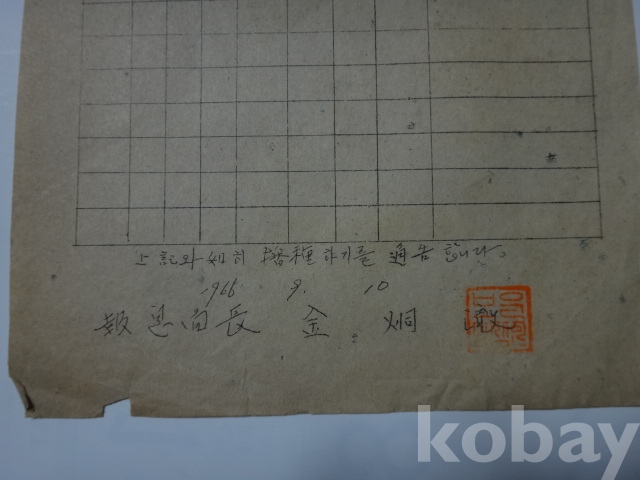 上記와 如히 播種하기를 通告합니다.
1966 9. 10
報恩面長 金 炯
kobay